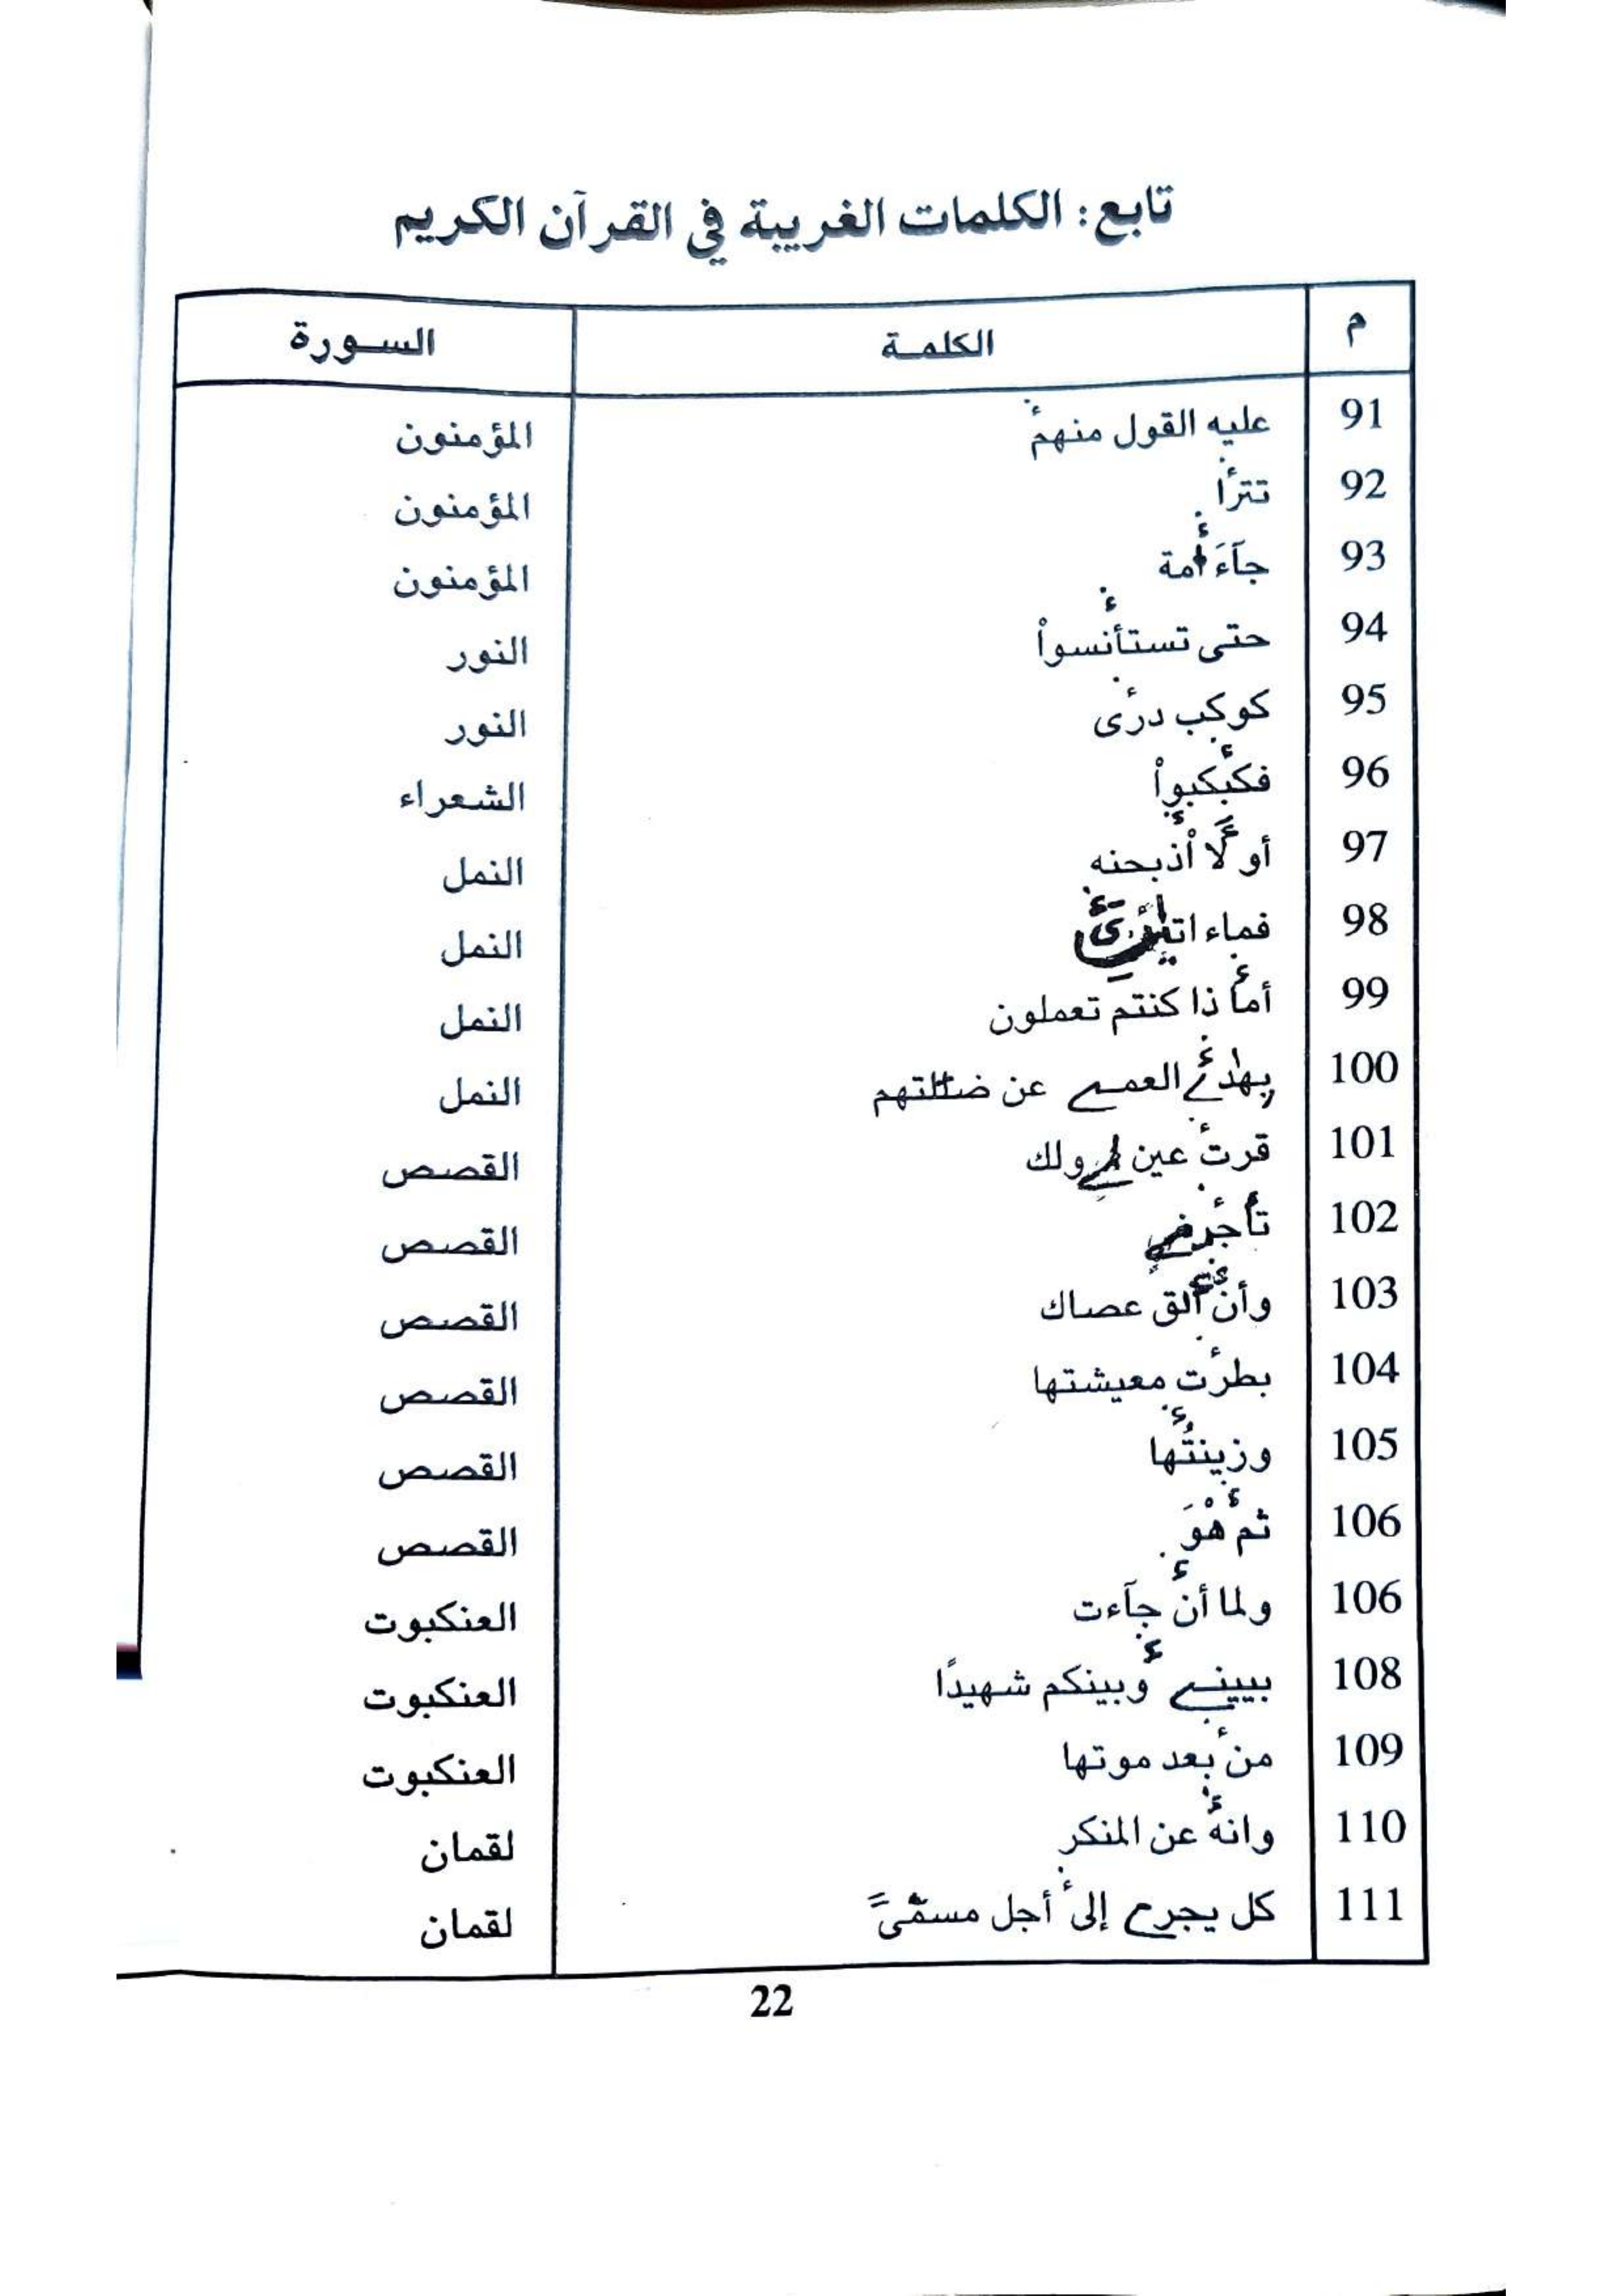 تابع: الكلمات الغريبة في القرآن الكريم
م الكلمـة السـورة
91 عليه القول منهمْ المؤمنون
92 تترًا المؤمنون
93 جآءَ أمة المؤمنون
94 حتى تستأنسواْ النور
95 كوكب درى النور
96 فكبكبواْ الشعراء
97 أو لَا اْذبحنه النمل
98 فماء النمل
99 أما ذا كنتم تعملون النمل
100 بهٰدے العمے عن ضلٰلتهم النمل
101 قرت عين لے ولك القصص
102 تأجرنے القصص
103 وأن ألق عصاك القصص
104 بطرت معيشتها القصص
105 وزينتُها القصص
106 ثم هْوَ القصص
106 ولما أن جآءت العنكبوت
108 بينے وبينكم شهيدًا العنكبوت
109 من بعد موتها العنكبوت
110 وانه عن المنكر لقمان
111 كل يجرے إلى أجل مسمًّى لقمان
22